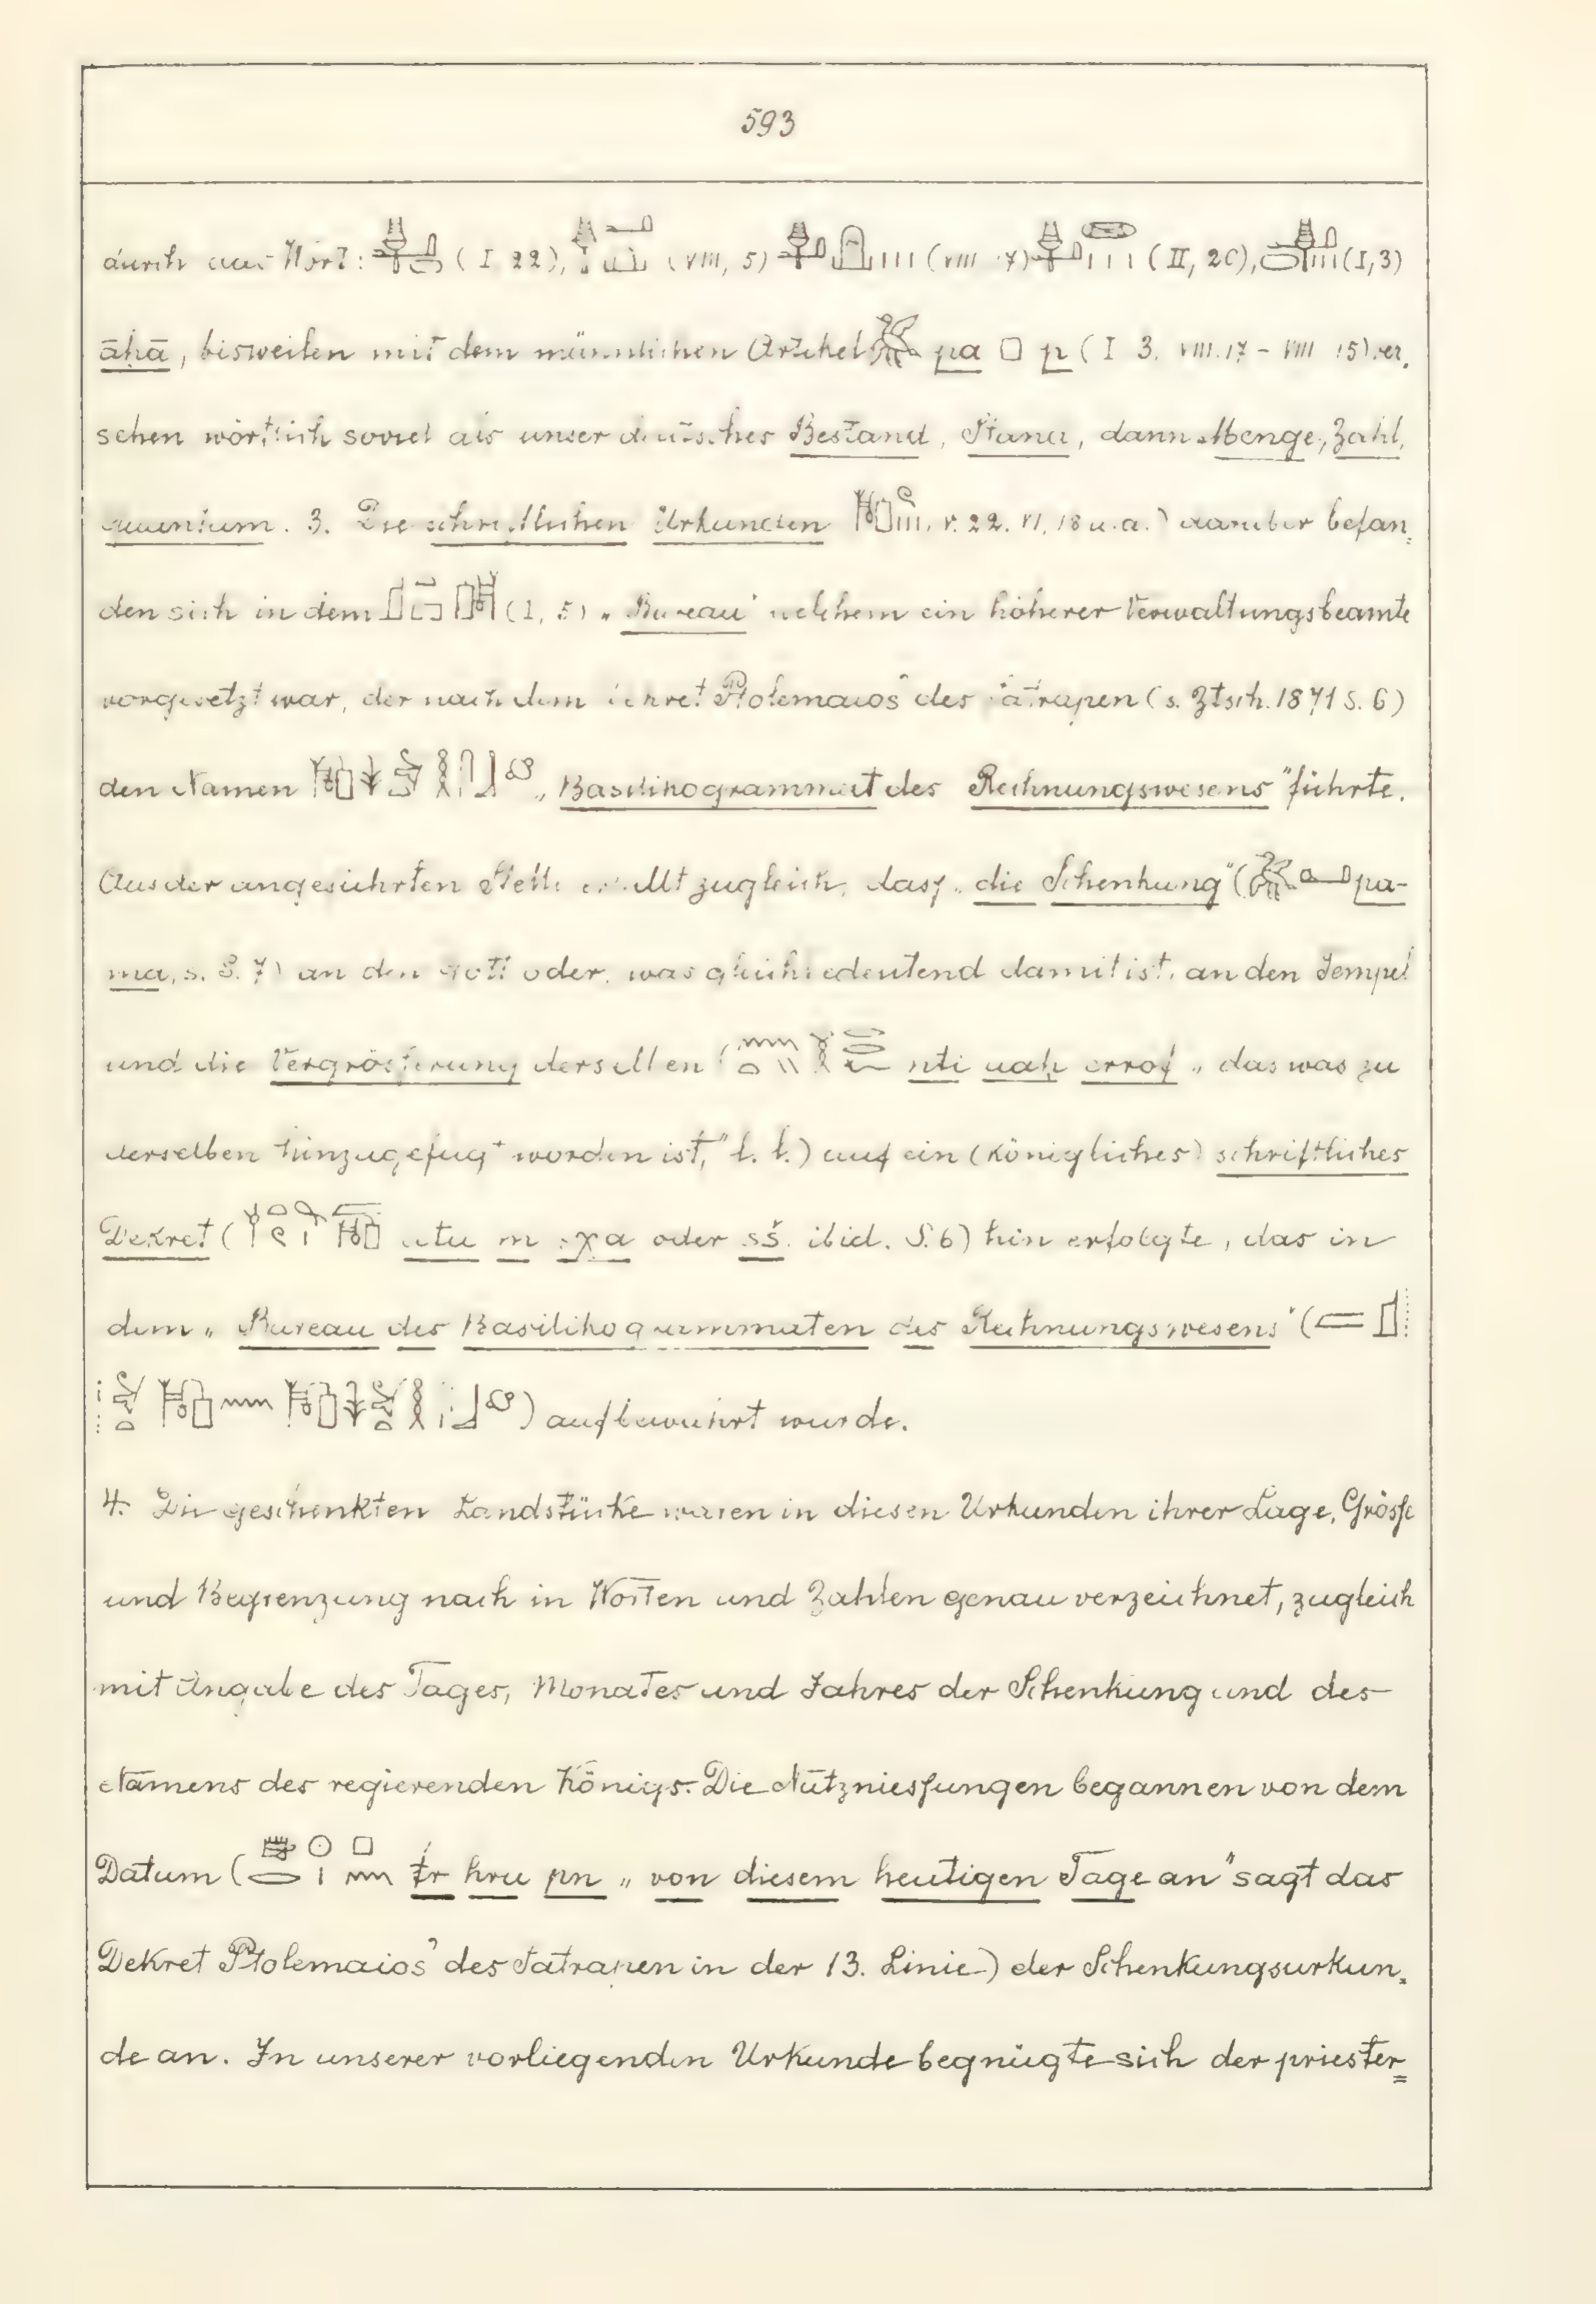 593
durch das Wort: (I 22), (VIII, 5) (VIII 17) (II, 20), (I, 3)
āhā, bisweilen mit dem männlichen Artikel pa p (I 3. VIII. 17 - VIII 15) ver-
sehen wörtlich soviel als unser deutsches Bestand, Stand, dann Menge, Zahl,
quantum. 3. Die schriftlichen Urkunden V. 22. VI, 18 u. a.) darüber befan-
den sich in dem (I, 5) „Bureau" welchem ein höherer Verwaltungsbeamte
vorgesetzt war, der nach dem Dekret Ptolemaios' des Satrapen (s. Ztsch. 1871 S. 6)
den Namen „Basilikogrammat des Rechnungswesens" führte.
Aus der angeführten Stelle erhellt zugleich, dass „die Schenkung" ( pa-
ma, s. S. 7) an den Gott oder, was gleichbedeutend damit ist, an den Tempel
und die Vergrösserung derselben ( nti uah errof „das was zu
derselben hinzugefügt worden ist," l. l.) auf ein (königliches) schriftliches
Dekret ( utu m sχa oder sš. ibid. S. 6) hin erfolgte, das in
dem „Bureau des Basilikogrammaten des Rechnungswesens" (
) aufbewahrt wurde.
4. Die geschenkten Landstücke waren in diesen Urkunden ihrer Lage, Grösse
und Begrenzung nach in Worten und Zahlen genau verzeichnet, zugleich
mit Angabe des Tages, Monates und Jahres der Schenkung und des
Namens des regierenden Königs. Die Nutzniessungen begannen von dem
Datum ( t́r hru pn „von diesem heutigen Tage an" sagt das
Dekret Ptolemaios' des Satrapen in der 13. Linie) der Schenkungsurkun-
de an. In unserer vorliegenden Urkunde begnügte sich der priester-